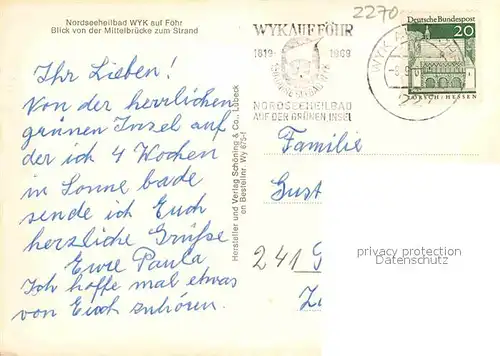 Nordseeheilbad WYK auf Föhr
Blick von der Mittelbrücke zum Strand
2270
WYK AUF FÖHR
1819 1969
NORDSEEHEILBAD
AUF DER GRÜNEN INSEL
Deutsche Bundespost
20
LORSCH · HESSEN
Ihr Lieben!
Von der herrlichen
grünen Insel auf
der ich 4 Wochen
in Sonne bade
sende ich Euch
herzliche Grüße
Eure Paula
Ich hoffe mal etwas
von Euch zu hören.
Hersteller und Verlag Schöning & Co., Lübeck
en Bestellnr. Wy 675-f
Familie
Gust
241
privacy protection
Datenschutz